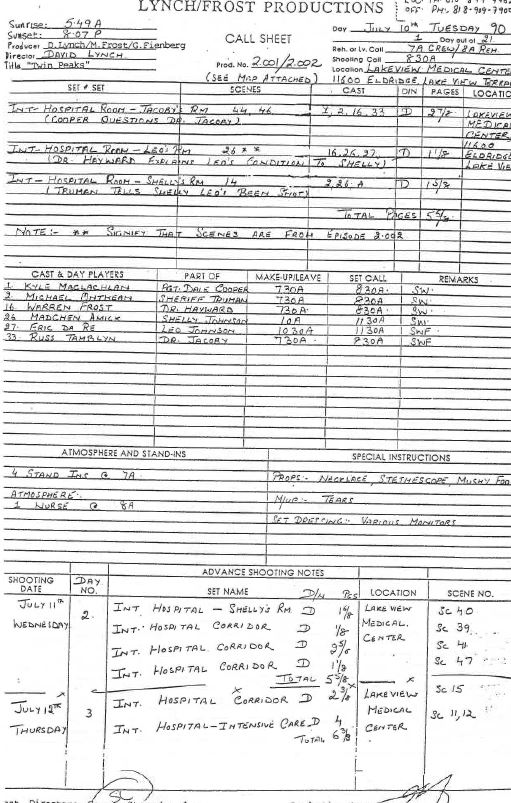 LYNCH/FROST PRODUCTIONS
OFF. PH. 818-909-7900
Sunrise: 5:49A
Sunset: 8:07 P
Producer D. Lynch/M. Frost/G. Fienberg
Director DAVID LYNCH
Title "TWIN PEAKS"
CALL SHEET
Prod. No. 2.001/2.002
(SEE MAP ATTACHED)
Day JULY 10th TUESDAY 90
1 Day out of 21
Reh. or Lv. Call 7A CREW/8A REH.
Shooting Call 8:30A
Location LAKEVIEW MEDICAL CENTE
11600 ELDRIDGE, LAKE VIEW TERRA
SET # SET SCENES CAST D/N PAGES LOCATIO
INT- HOSPITAL ROOM - JACOBY'S RM 44, 46. 1, 2, 16, 33 D 2 7/8 LAKEVIEW
(COOPER QUESTIONS DR. JACOBY) MEDICAL
CENTER
11600
INT- HOSPITAL ROOM - LEO'S RM 26 ** 16, 26, 27. D 1 1/8 ELDRIDGE
(DR. HAYWARD EXPLAINS LEO'S CONDITION TO SHELLY) LAKE VIEW
INT- HOSPITAL ROOM - SHELLY'S RM 14 2, 26. A D 1 5/8
(TRUMAN TELLS SHELLY LEO'S BEEN SHOT)
TOTAL PAGES 5 5/8
NOTE:- ** SIGNIFY THAT SCENES ARE FROM EPISODE 2.002
CAST & DAY PLAYERS PART OF MAKE-UP/LEAVE SET CALL REMARKS
1. KYLE MACLACHLAN AGT. DALE COOPER 730A 830A. SW.
2. MICHAEL ONTKEAN SHERIFF TRUMAN 730A 830A. SW.
16 WARREN FROST DR. HAYWARD 730A. 830A. SW.
26 MADCHEN AMICK SHELLY JOHNSON 10A 1130A SW.
27. ERIC DA RE LEO JOHNSON 1030A 1130A SWF.
33. RUSS TAMBLYN DR. JACOBY 730A 830A SWF
ATMOSPHERE AND STAND-INS SPECIAL INSTRUCTIONS
4 STAND INS @ 7A PROPS:- NECKLACE, STETHESCOPE, MUSHY FOO
ATMOSPHERE: M/UP:- TEARS
1 NURSE @ 8A
SET DRESSING:- VARIOUS MONITORS
ADVANCE SHOOTING NOTES
SHOOTING DATE DAY NO. SET NAME D/N PGS LOCATION SCENE NO.
JULY 11th WEDNESDAY 2. INT. HOSPITAL - SHELLY'S RM D 1 5/8 LAKEVIEW MEDICAL. CENTER SC 40
INT. HOSPITAL CORRIDOR D 1/8 SC 39
INT. HOSPITAL CORRIDOR D SC 41
INT. HOSPITAL CORRIDOR D 1 1/8 SC 47
TOTAL 5 5/8
JULY 12th THURSDAY 3 INT. HOSPITAL CORRIDOR D 2 3/8 LAKEVIEW MEDICAL CENTER SC 15
INT. HOSPITAL-INTENSIVE CARE D 4 SC 11, 12
TOTAL 6 3/8